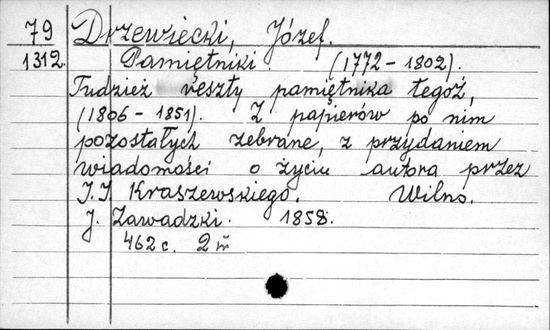 79 Drzewiecki, Józef.
1312. Pamiętniki. (1772-1802).
Tudzież reszty pamiętnika tegoż,
(1806-1851). Z papierów po nim
pozostałych zebrane, z przydaniem
wiadomości o życiu autora przez
J.I. Kraszewskiego. Wilno.
J. Zawadzki. 1858.
462 c. 2